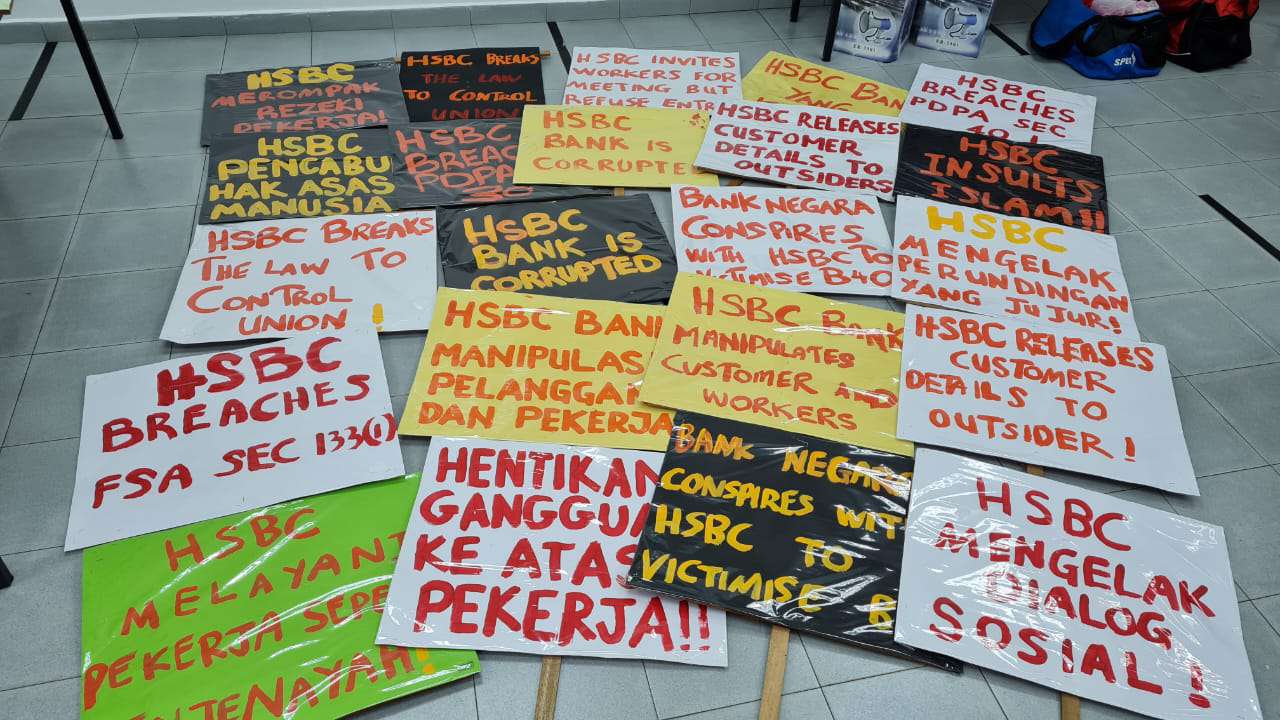 HSBC
MEROMPAK
REZEKI
PEKERJA!
HSBC BREAKS
THE LAW
TO CONTROL
UNION
HSBC INVITES
WORKERS FOR
MEETING BUT
REFUSE
HSBC BANK
YANG
HSBC
BREACHES
PDPA SEC
HSBC
PENCABU
HAK ASAS
MANUSIA
HSBC
BREAC
PDPA
HSBC
BANK IS
CORRUPTE
HSBC RELEASES
CUSTOMER
DETAILS TO
OUTSIDERS
HSBC
INSULTS
ISLAM!!
HSBC BREAKS
THE LAW TO
CONTROL
UNION !
HSBC
BANK IS
CORRUPTED
BANK NEGARA
CONSPIRES
WITH HSBC TO
VICTIMISE B40
HSBC
MENGELAK
PERUNDINGAN
YANG JUJUR!
HSBC
BREACHES
FSA SEC 133(1)
HSBC BANK
MANIPULAS
PELANGGAN
DAN PEKERJA
HSBC BANK
MANIPULATES
CUSTOMER AND
WORKERS
HSBC RELEASES
CUSTOMER
DETAILS TO
OUTSIDER !
HSBC
MELAYANI
PEKERJA SEPE
PENJENAYAH!
HENTIKAN
GANGGUA
KE ATAS
PEKERJA!!
BANK NEGARA
CONSPIRES WIT
HSBC TO
VICTIMISE B
HSBC
MENGELAK
DIALOG
SOSIAL !
SPEE